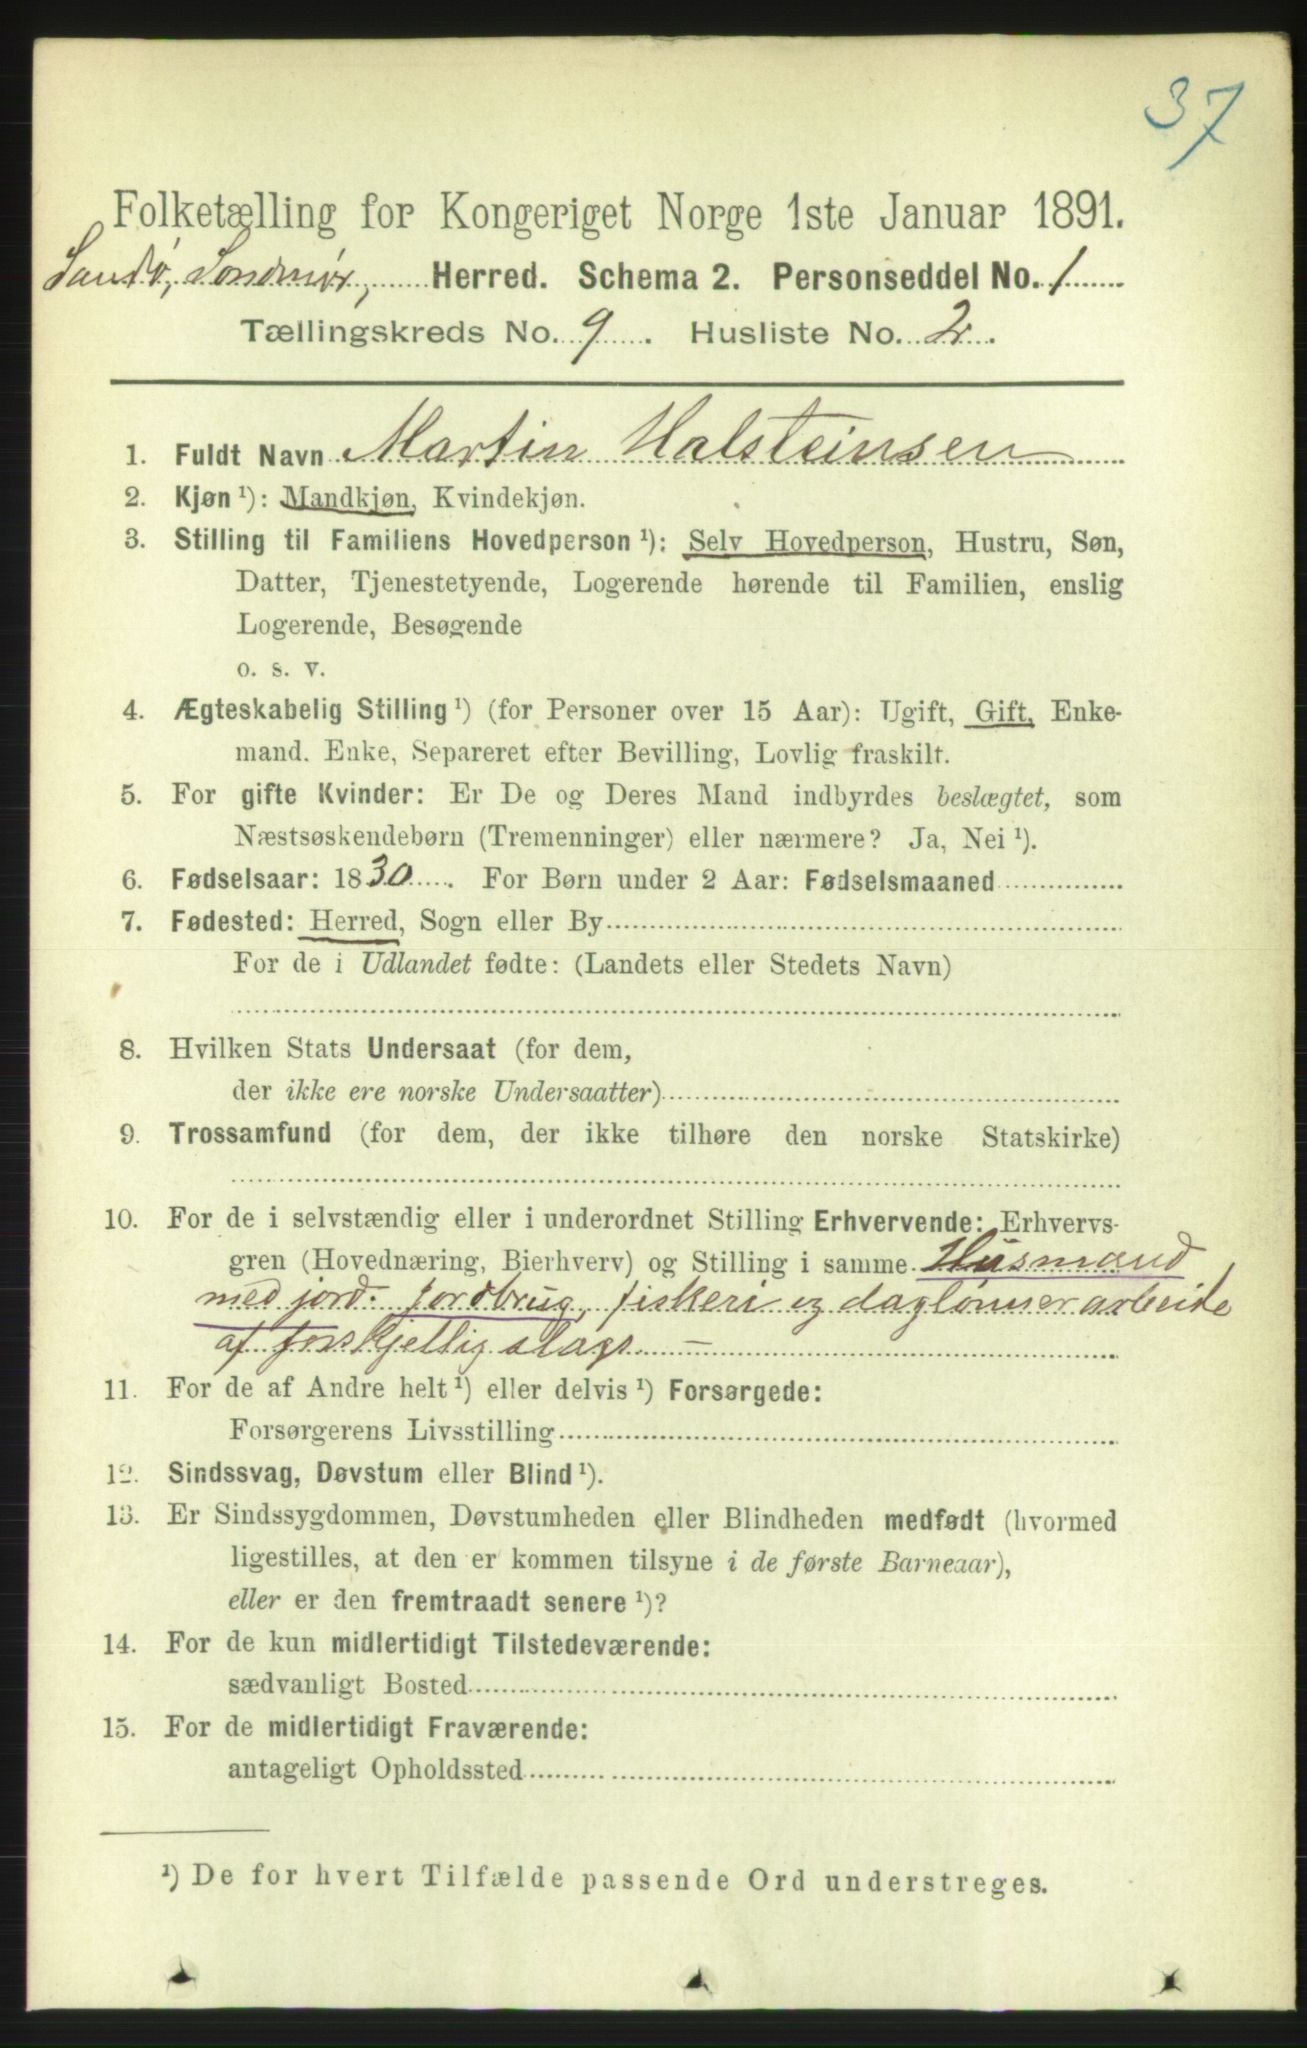 37
Folketælling for Kongeriget Norge 1ste Januar 1891.
Sandø, Søndmør, Herred. Schema 2. Personseddel No. 1
Tællingskreds No. 9. Husliste No. 2.
1. Fuldt Navn Martin Halsteinsen
2. Kjøn ¹): Mandkjøn, Kvindekjøn.
3. Stilling til Familiens Hovedperson ¹): Selv Hovedperson, Hustru, Søn,
Datter, Tjenestetyende, Logerende hørende til Familien, enslig
Logerende, Besøgende
o. s. v.
4. Ægteskabelig Stilling ¹) (for Personer over 15 Aar): Ugift, Gift, Enke-
mand. Enke, Separeret efter Bevilling, Lovlig fraskilt.
5. For gifte Kvinder: Er De og Deres Mand indbyrdes beslægtet, som
Næstsøskendebørn (Tremenninger) eller nærmere? Ja, Nei ¹).
6. Fødselsaar: 1830. For Børn under 2 Aar: Fødselsmaaned
7. Fødested: Herred, Sogn eller By
For de i Udlandet fødte: (Landets eller Stedets Navn)
8. Hvilken Stats Undersaat (for dem,
der ikke ere norske Undersaatter)
9. Trossamfund (for dem, der ikke tilhøre den norske Statskirke)
10. For de i selvstændig eller i underordnet Stilling Erhvervende: Erhvervs-
gren (Hovednæring, Bierhverv) og Stilling i samme Husmand
med jord. Jordbrug, fiskeri og daglønnerarbeide
af forskjellig slags. —
11. For de af Andre helt ¹) eller delvis ¹) Forsørgede:
Forsørgerens Livsstilling
12. Sindssvag, Døvstum eller Blind ¹).
13. Er Sindssygdommen, Døvstumheden eller Blindheden medfødt (hvormed
ligestilles, at den er kommen tilsyne i de første Barneaar),
eller er den fremtraadt senere ¹)?
14. For de kun midlertidigt Tilstedeværende:
sædvanligt Bosted
15. For de midlertidigt Fraværende:
antageligt Opholdssted
¹) De for hvert Tilfælde passende Ord understreges.